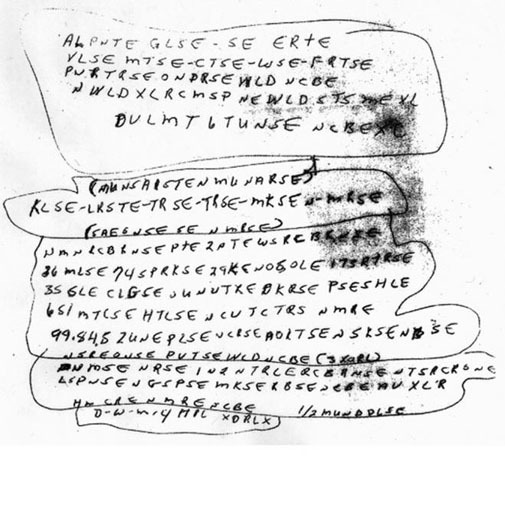 ALPNTE GLSE - SE ERTE
VLSE MTSE-CTSE-WSE-FRTSE
PNRTRSE ONDRSE WLD NCBE
NWLDXLRCMSP NEWLD STS ME XL
DULMT 6 TUNSE NCBE XL
(MUNSAISTEN MUNARSE)
KLSE-LRSTE-TRSE-TRSE-MKSEN-MRSE
(SAEGNSE SE NMRSE)
NMNRCBRNSE PTE2PTEWSRCBRNSE
36 MLSE 74 SPRKSE 29KENOSOLE 173RTRSE
35 GLE CLGSE UNUTXE DKRSE PSESHLE
651 MTCSE HTLSE NCUTCTRS NMRE
99.84.5 2UNE PLSE NCRSE AOLTSE NSKSE NBSE
NSREONSE PUTSE WLD NCBE (3XORL)
NMSE NRSE IN2NTRLERCBRNSE NTSRCRONE
LSPNSE NGSPSE MKSERBSE NCBE AUXLR
HM CRE NMRE NCBE 1/2 MUNDDLSE
D-W-M-4 MIL XDRLX